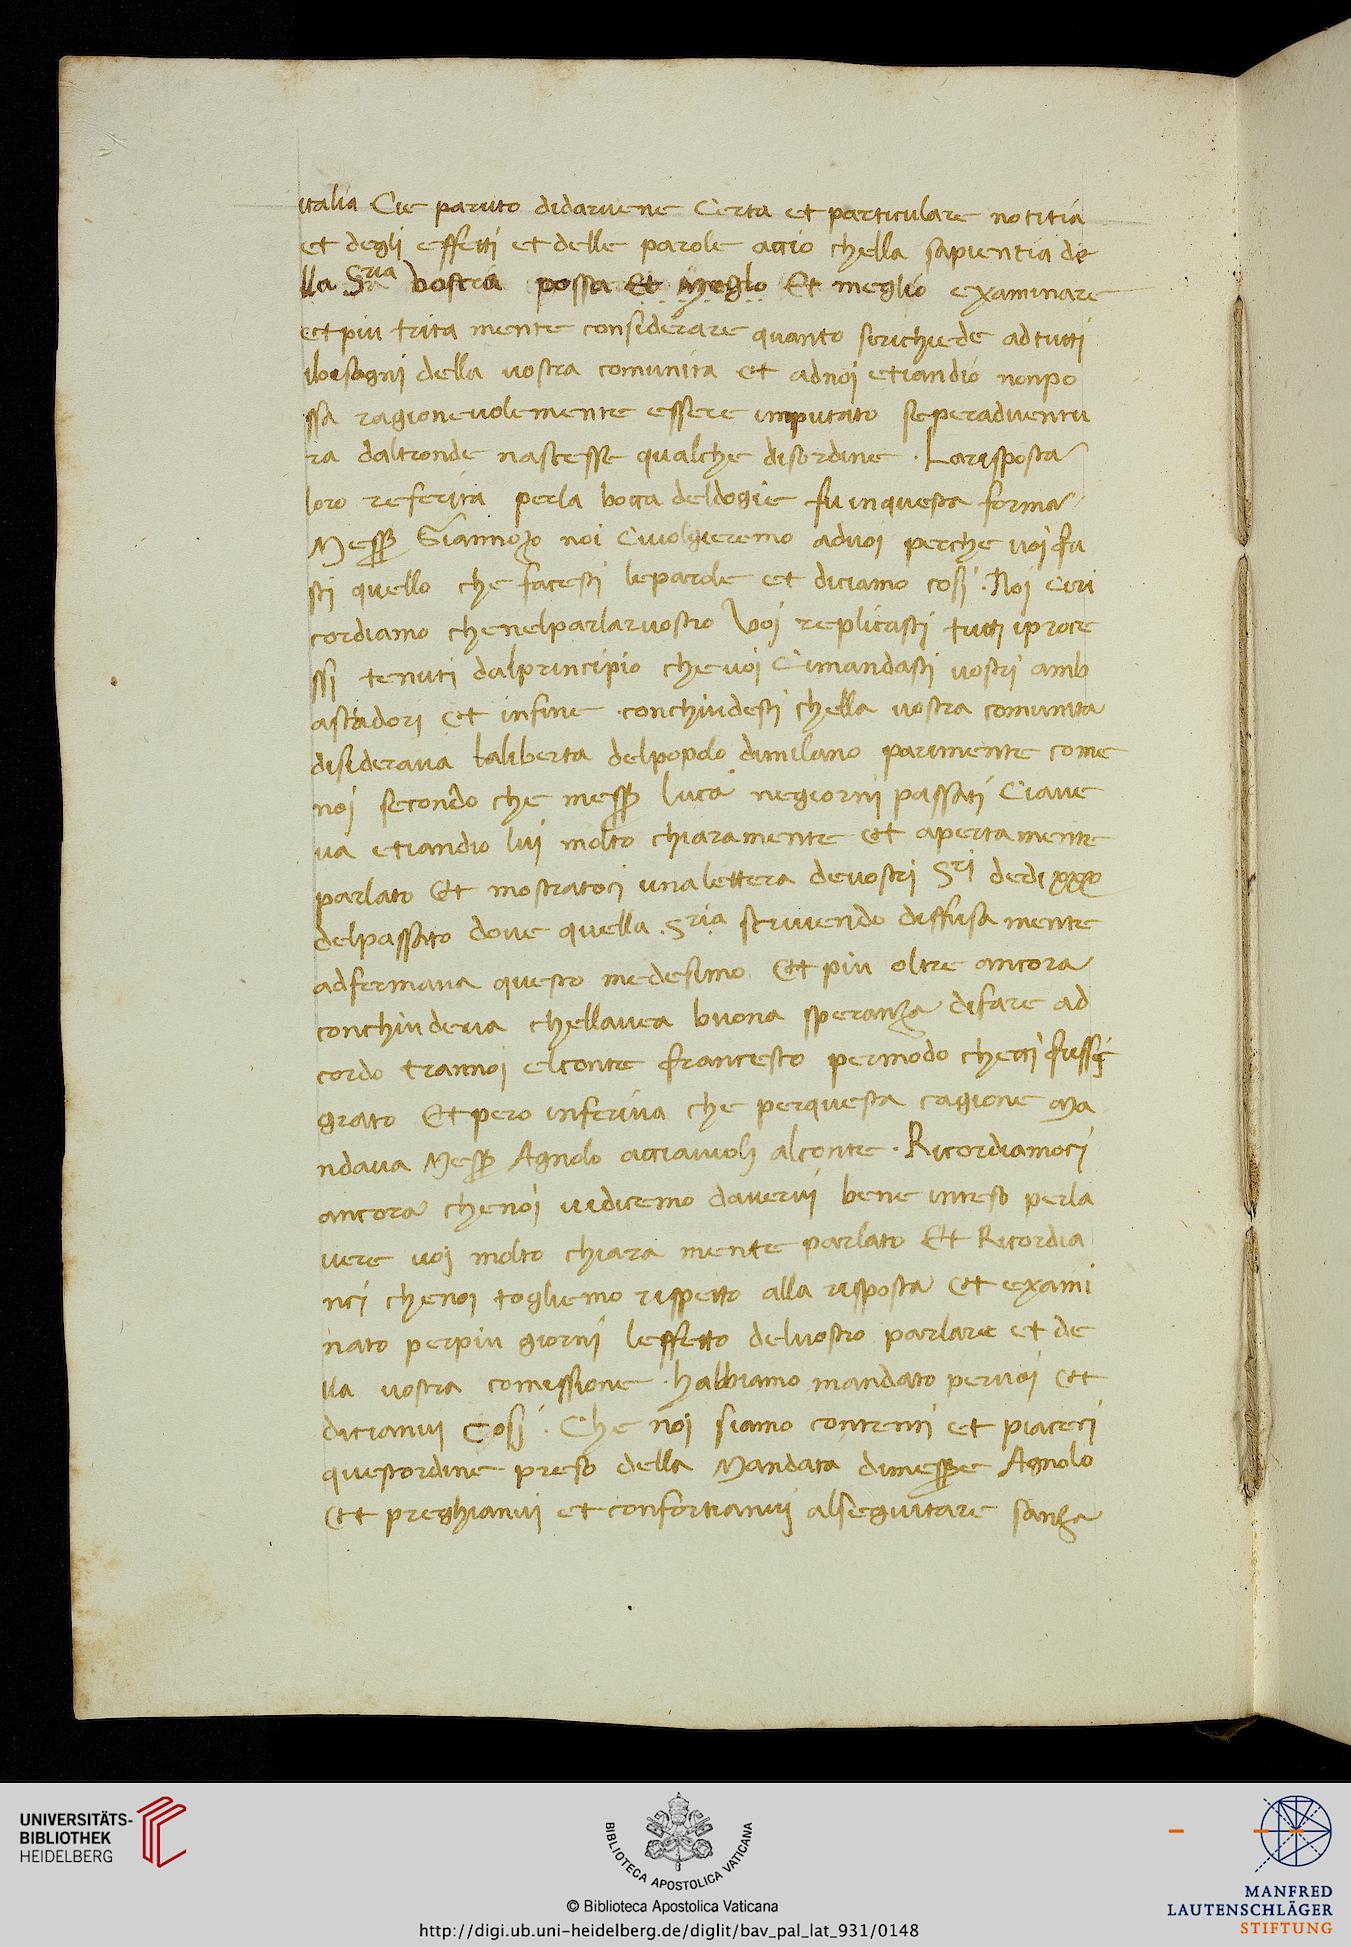 italia Cie paruto didaruene Certa et particulare notitia
et degli effetti et delle parole accio chella sapientia de
lla Sria vostra possa et meglo Et meglio examinare
et piu trita mente considerare quanto serichiede adtutti
ibisogni della vostra comunita et adnoi etiandio nonpo
ssa ragioneuolemente essere imputato seperaduentu
ra daltronde nascesse qualche disordine . Larisposta
loro referita perla bocca deldogie fu inquesta forma
Messer Giannozo noi Ciuolgieremo aduoi perche uoi fu
sti quello che facesti leparole et diciamo cosi . Noi Ciri
cordiamo chenelparlaruostro Voi replicasti tutti iproce
ssi tenuti dalprincipio cheuoi Cimandasti uostri amb
asciadori et infine conchiudesti chella uostra comunita
disideraua laliberta delpopolo dimilano parimente come
noi secondo che messer luca negiorni passati Ciaue
ua etiandio lui molto chiaramente et aperta mente
parlato et mostratoci unalettera deuostri Sri dedi xxx
delpassato doue quella .Sria scriuendo diffusa mente
adfermaua questo medesimo et piu oltre ancora
conchiudeua chellauea buona speranza difare ad
cordo trannoi elconte francesco permodo checci fussi
grato et pero inferiua che perquesta cagione ma
ndaua Messer Agnolo acciaiuoli alconte . Ricordiamoci
ancora chenoi uidicemo dauerui bene inteso perla
uere uoi molto chiara mente parlato Et Ricordia
nci chenoi togliemo rispetto alla risposta et exami
nato perpiu giorni leffetto deluostro parlare et de
lla uostra comessione . habbiamo mandato peruoi et
dicianui Cosi . Che noi siamo contenti et piaceci
questordine preso della Mandata dimessere Agnolo
et preghianui et confortianui alseguitare sanza
UNIVERSITÄTS-
BIBLIOTHEK
HEIDELBERG
BIBLIOTECA APOSTOLICA VATICANA
© Biblioteca Apostolica Vaticana
http://digi.ub.uni-heidelberg.de/diglit/bav_pal_lat_931/0148
MANFRED
LAUTENSCHLÄGER
STIFTUNG